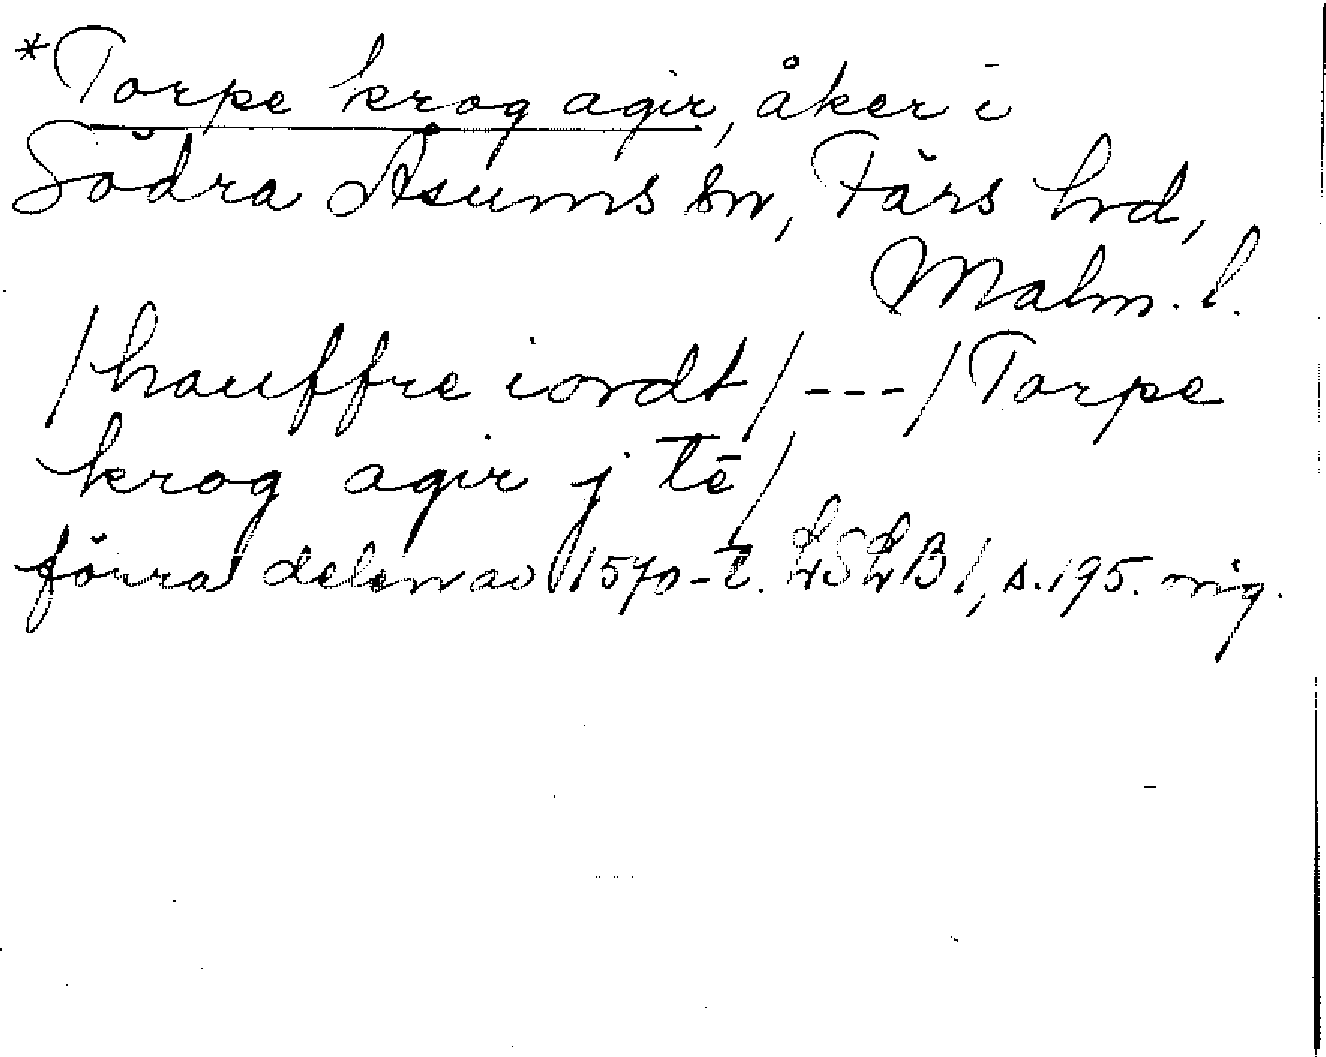 *Torpe krog agir, åker i
Södra Åsums sn, Färs hrd,
Malm. l.
/hauffre iordt/---/Torpe
krog agir j tē/
förra delen av 1570-t. LSLB 1, s. 195. orig.